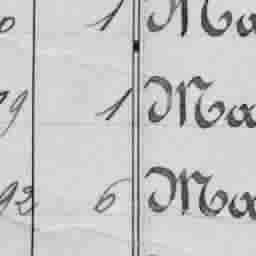 0 1 Ma
79 1 Ma
93 6 Ma